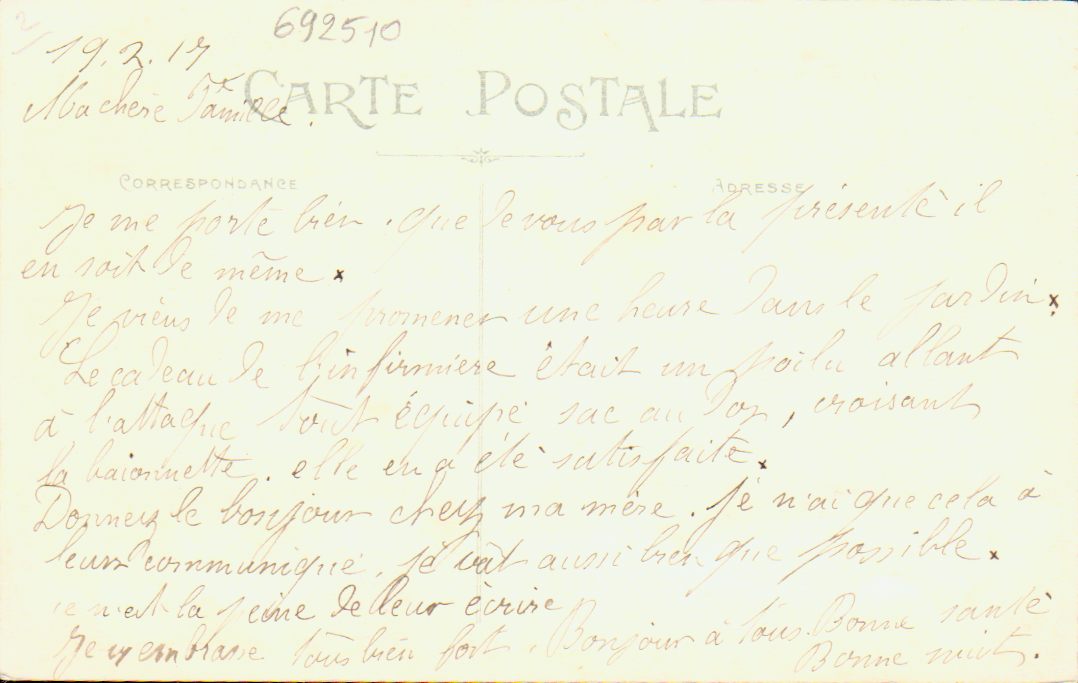 692510
19.2.17
CARTE POSTALE
Ma chère Famille.
CORRESPONDANCE
ADRESSE
Je me porte bien. que de vous par la présente il
en soit de même.
Je viens de me promener une heure dans le jardin.
Le cadeau de l'infirmière était un poilu allant
à l'attaque tout équipé sac au dos, croisant
la baionnette. elle en a été satisfaite.
Donnez le bonjour chez ma mère. Je n'ai que cela à
leur communiqué. je vat aussi bien que possible.
ce n'est la peine de leur écrire
Je embrasse tous bien fort. Bonjour à tous. Bonne santé
Bonne nuit.